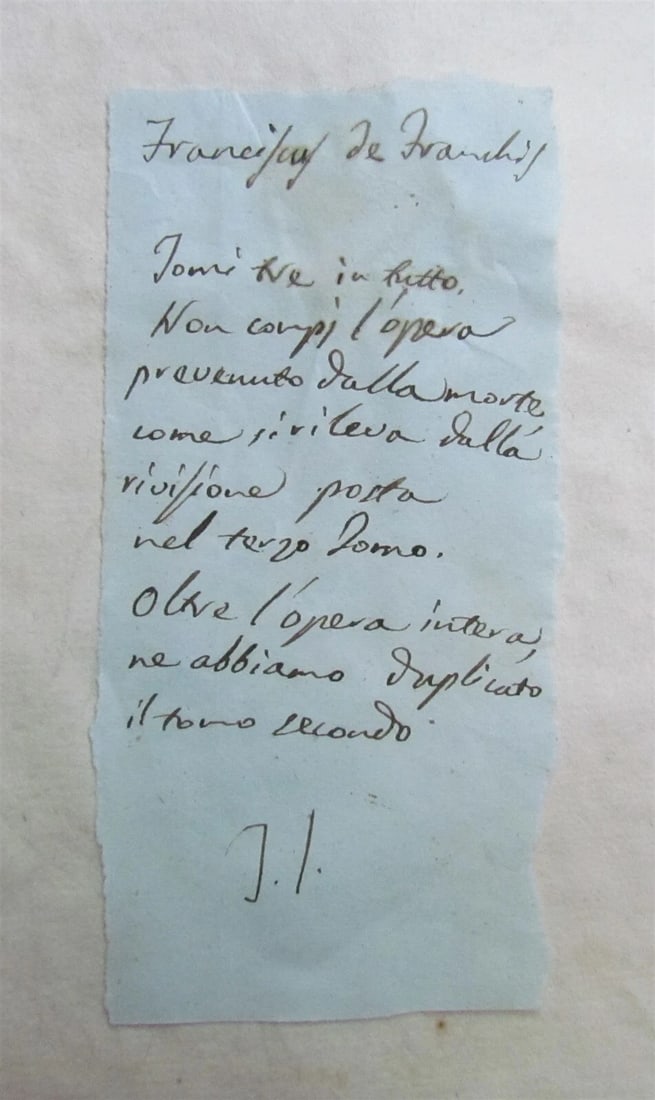 Franciscus de Franchis
Tomi tre in tutto.
Non compì l'opera
prevenuto dalla morte,
come si rileva dalla
rivisione posta
nel terzo Tomo.
Oltre l'opera intera,
ne abbiamo duplicato
il tomo secondo.